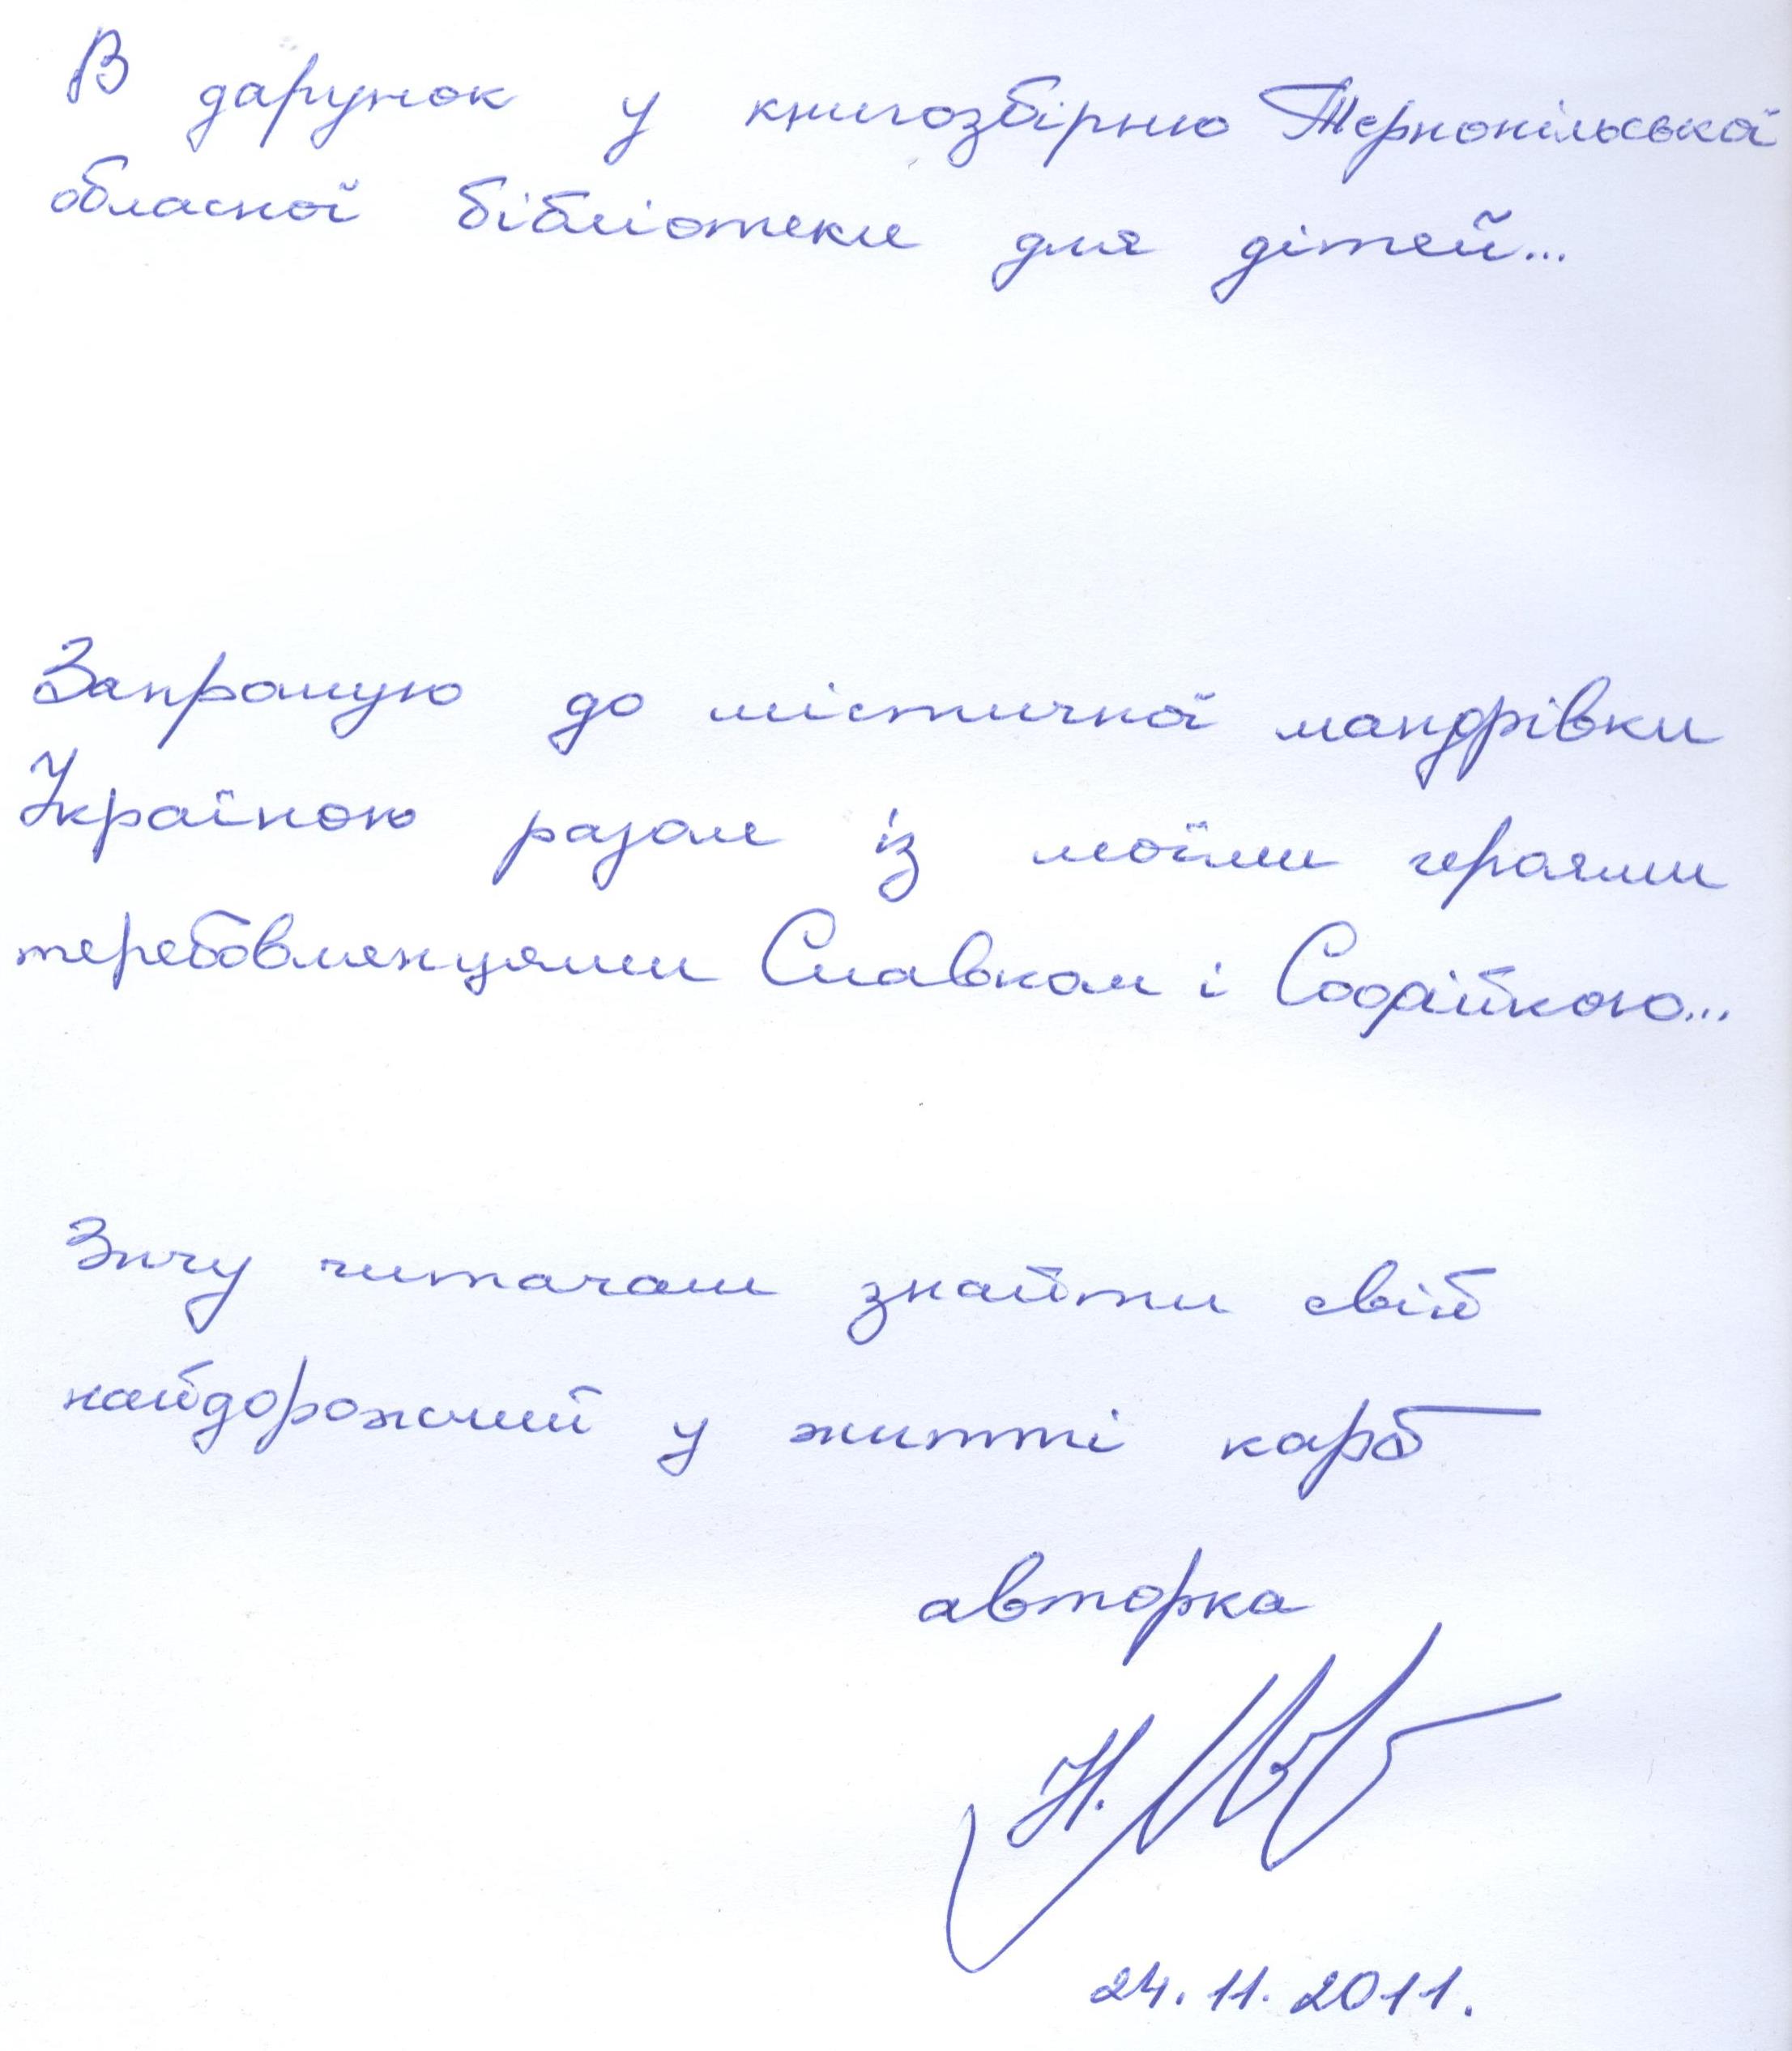 В дарунок у книгозбірню Тернопільської
обласної бібліотеки для дітей...
Запрошую до містичної мандрівки
Україною разом із моїми героями
теребовлянцями Славком і Софійкою...
Зичу читачам знайти свій
найдорожчий у житті карб
авторка
Н.
24.11.2011.